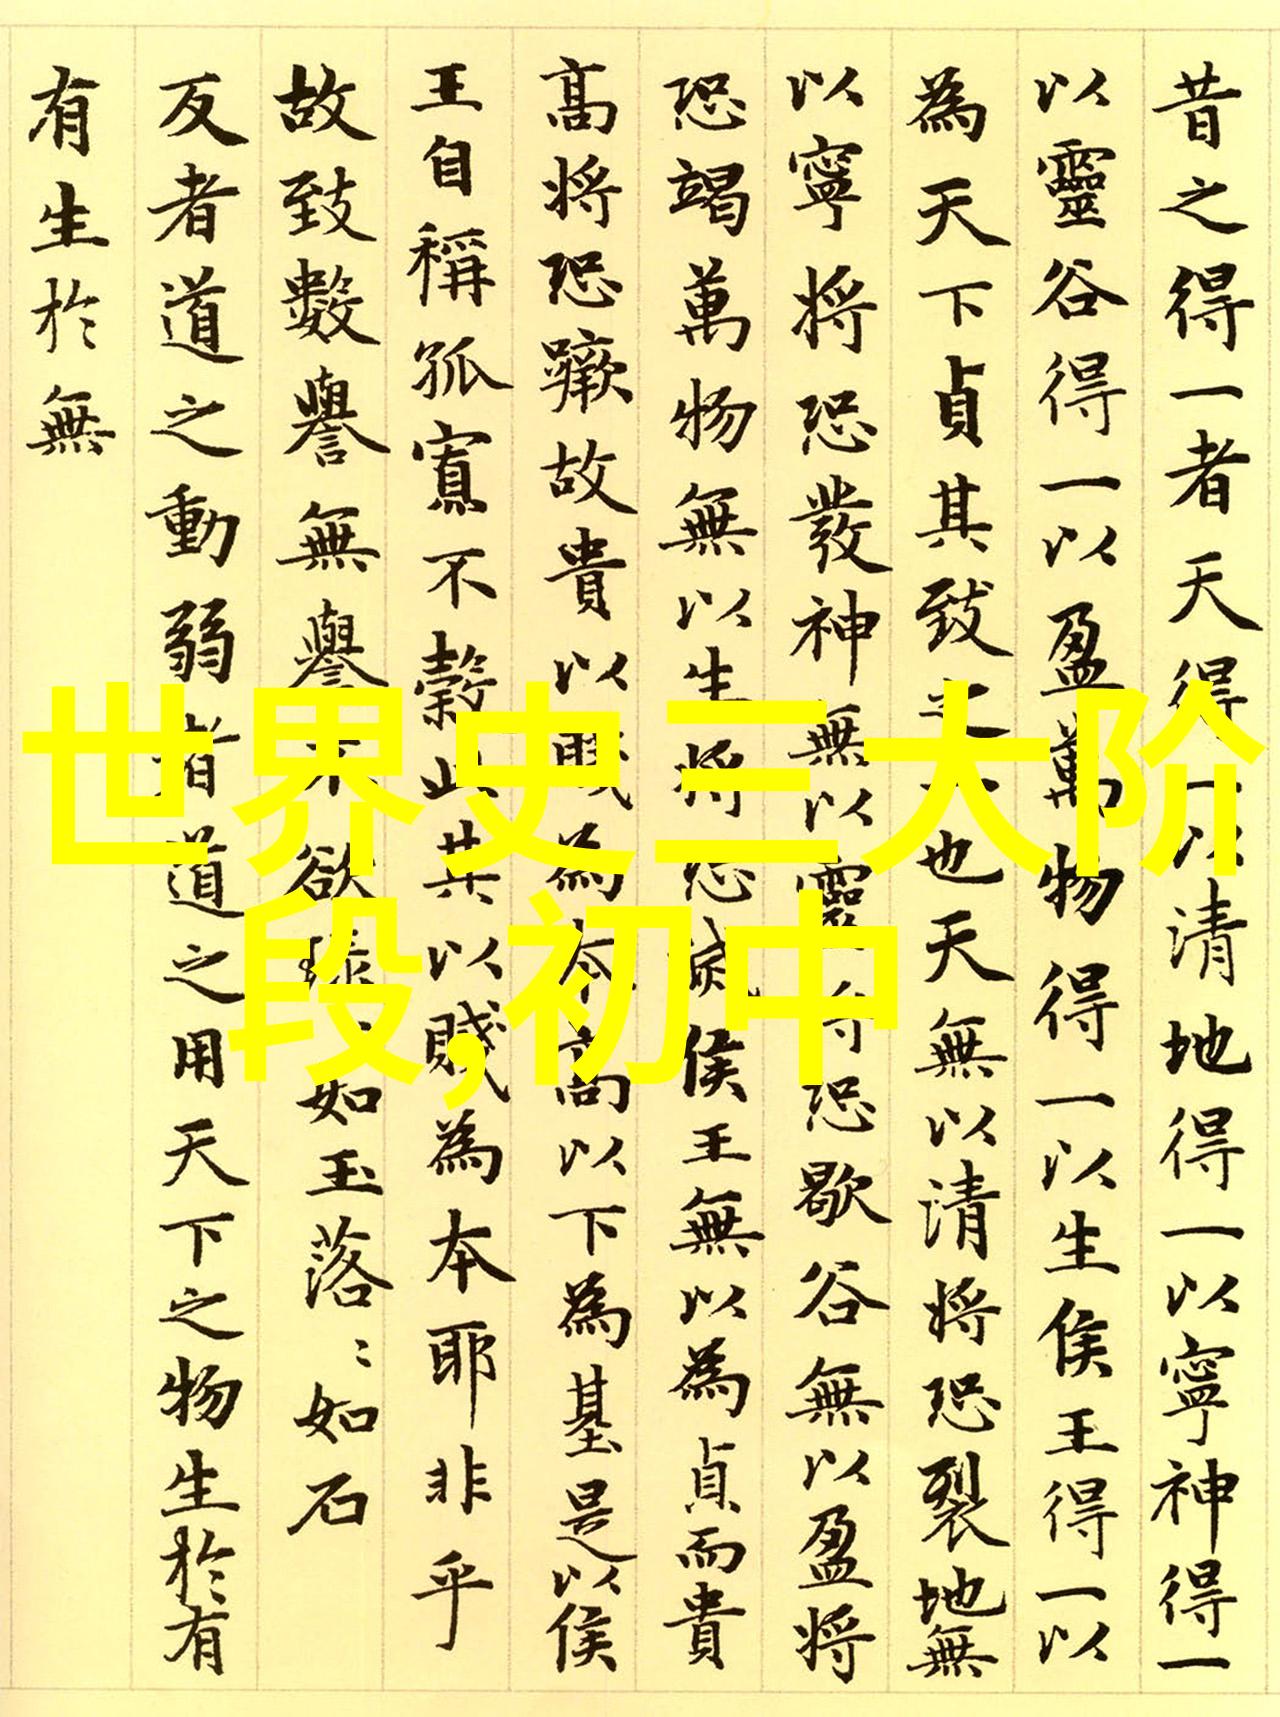 昔之得一者天得一以清地得一以寧神得一
以靈谷得一以盈萬物得一以生侯王得一以
為天下貞其致之一也天無以清將恐裂地無
以寧將恐發神無以靈將恐歇谷無以盈將
恐竭萬物無以生將恐滅侯王無以為貞而貴
高將恐蹶故貴以賤為本高以下為基是以侯
王自稱孤寡不穀此其以賤為本耶非乎
故致數譽無譽不欲琭﹕如玉落﹕如石
反者道之動弱者道之用天下之物生於有
有生於無
世界史三大阶
段,初中